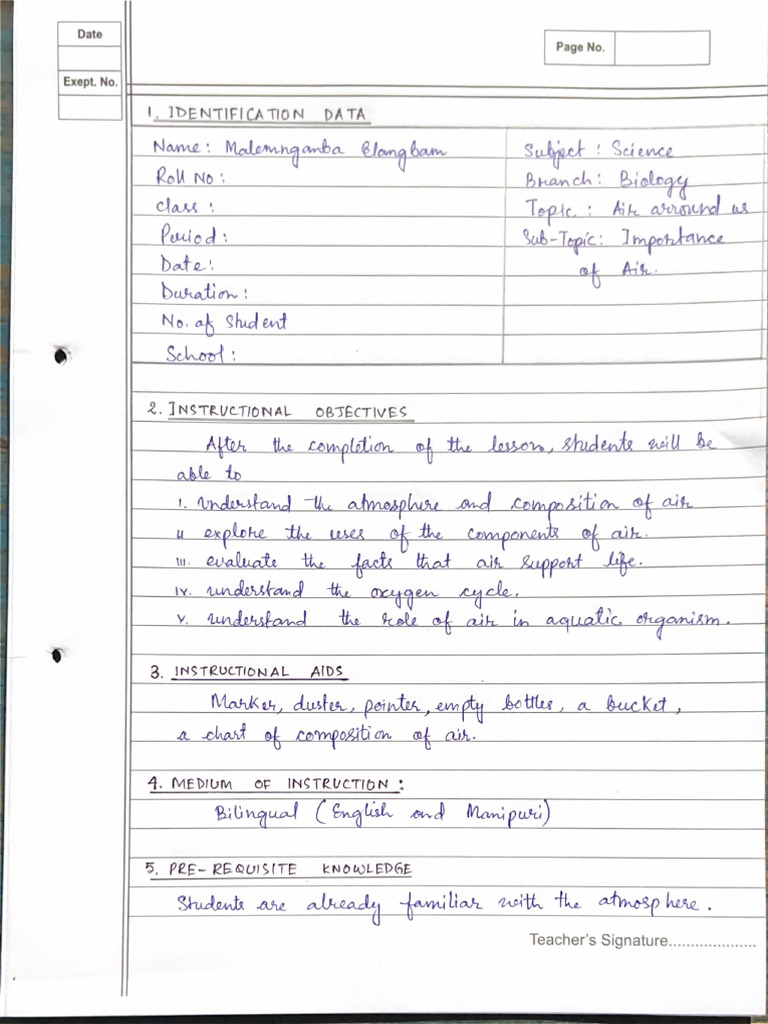 Date
Page No.
Exept. No.
1. IDENTIFICATION DATA
Name: Malemnganba Elangbam
Subject : Science
Roll No :
Branch : Biology
Class :
Topic : Air arround us
Period :
Sub-Topic : Importance
Date :
of Air.
Duration :
No. of Student
School :
2. INSTRUCTIONAL OBJECTIVES
After the completion of the lesson, students will be
able to
i. understand the atmosphere and composition of air
ii explore the uses of the components of air.
iii. evaluate the facts that air support life.
iv. understand the oxygen cycle.
v. understand the role of air in aquatic organism.
3. INSTRUCTIONAL AIDS
Marker, duster, pointer, empty bottles, a bucket,
a chart of composition of air.
4. MEDIUM OF INSTRUCTION :
Bilingual (English and Manipuri)
5. PRE-REQUISITE KNOWLEDGE
Students are already familiar with the atmosphere.
Teacher's Signature....................